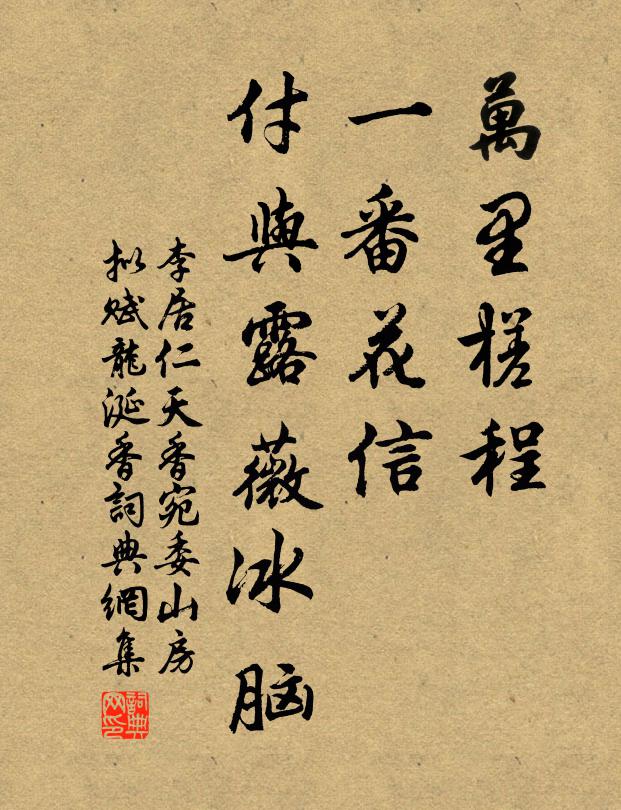 萬里槎程
一番花信
付與露薇冰脑
李居仁天香宛委山房
拟赋龍涎香詞典網集
詞典网印